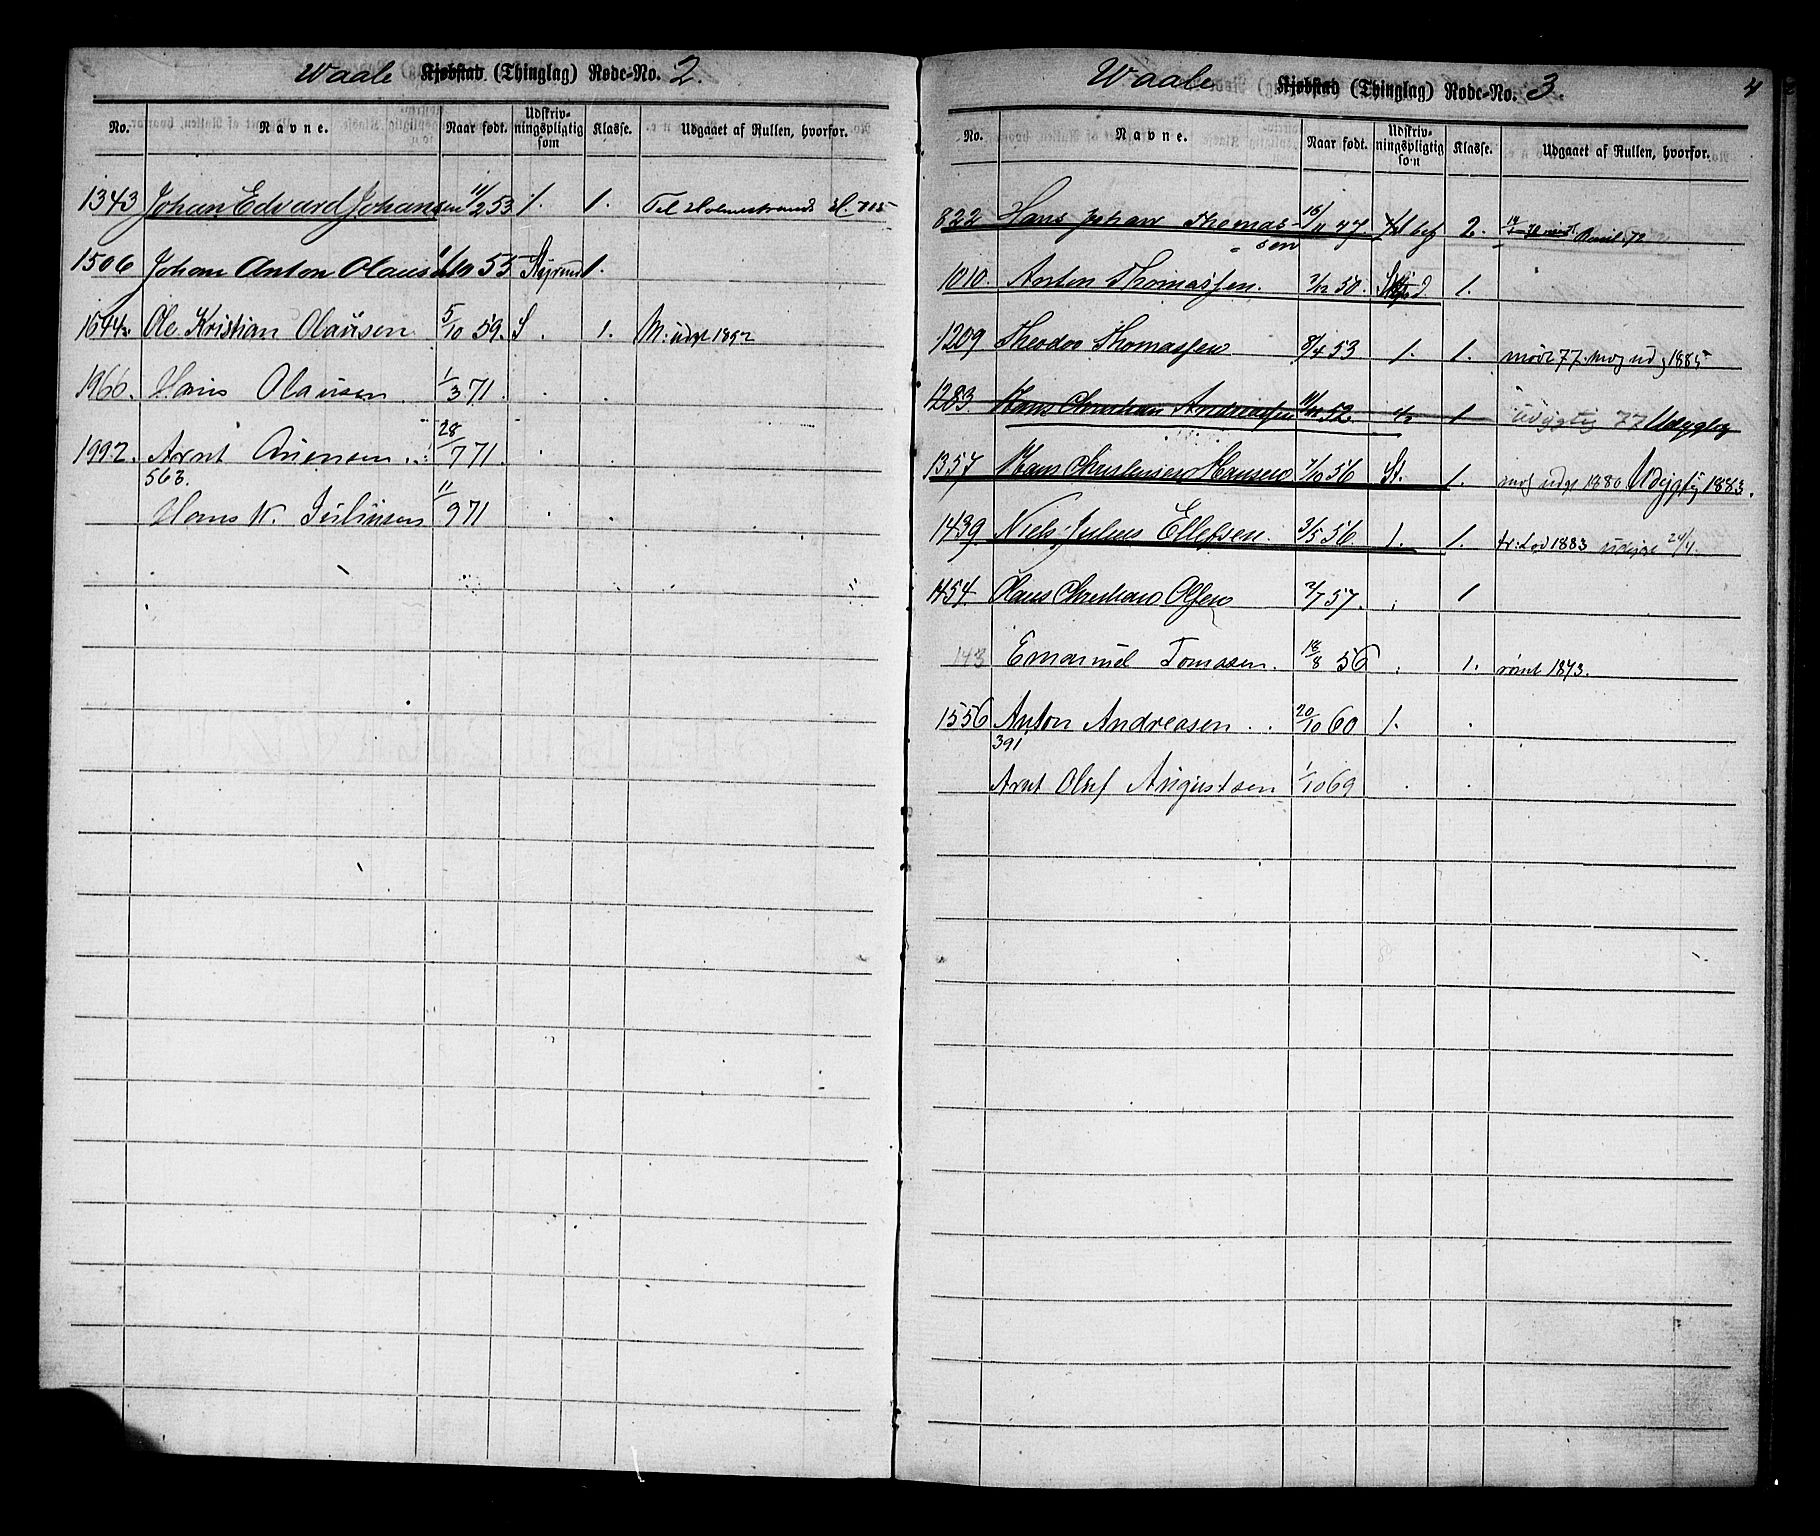 Waale Kjøbstad (Thinglag) Rode-No. 2.
No. Navne. Naar født. Udskrivningspligtig som Klasse. Udgaaet af Rullen, hvorfor.
1343 Johan Edvard Johansen 11/2 53 1. 1. Til Holmestrand
1506 Johan Anton Olaus 10 55 1.
1544 Ole Kristian Olausen 5/10 59. S. 1. M: udgt
1966. Hans Olausen 1/3 71.
1992. Arnt 28/7 71.
563.
Hans K. Julinsen 11/9 71
Waale Kjøbstad (Thinglag) Rode-No. 3. 4
No. Navne. Naar født. Udskrivningspligtig som Klasse. Udgaaet af Rullen, hvorfor.
822 Hans Johan Thomas- 16/11 47 2.
sen
1010. Anton Thomassen. 2/12 50. 1.
1209 Theodor Thomassen 8/4 53 1. 1. mødt 77. 1885
1283. Hans Christian Andreassen 52. 1 Udygtig 77 Udygtig
1357 Hans Christensen Hansen 7/10 56 St. 1. udgt 1880 Udygtig 1883.
1439. Niels Julius Ellefsen. 3/5 56. 1. 1. 1883 24/4.
1454. Hans Christian Olsen 2/7 57. 1
143 Emanuel Tomasen. 18/8 56 1. rømt 1873.
1556 Anton Andreasen 20/10 60 1.
391
Arnt Olaf Augustsen 1/10 69